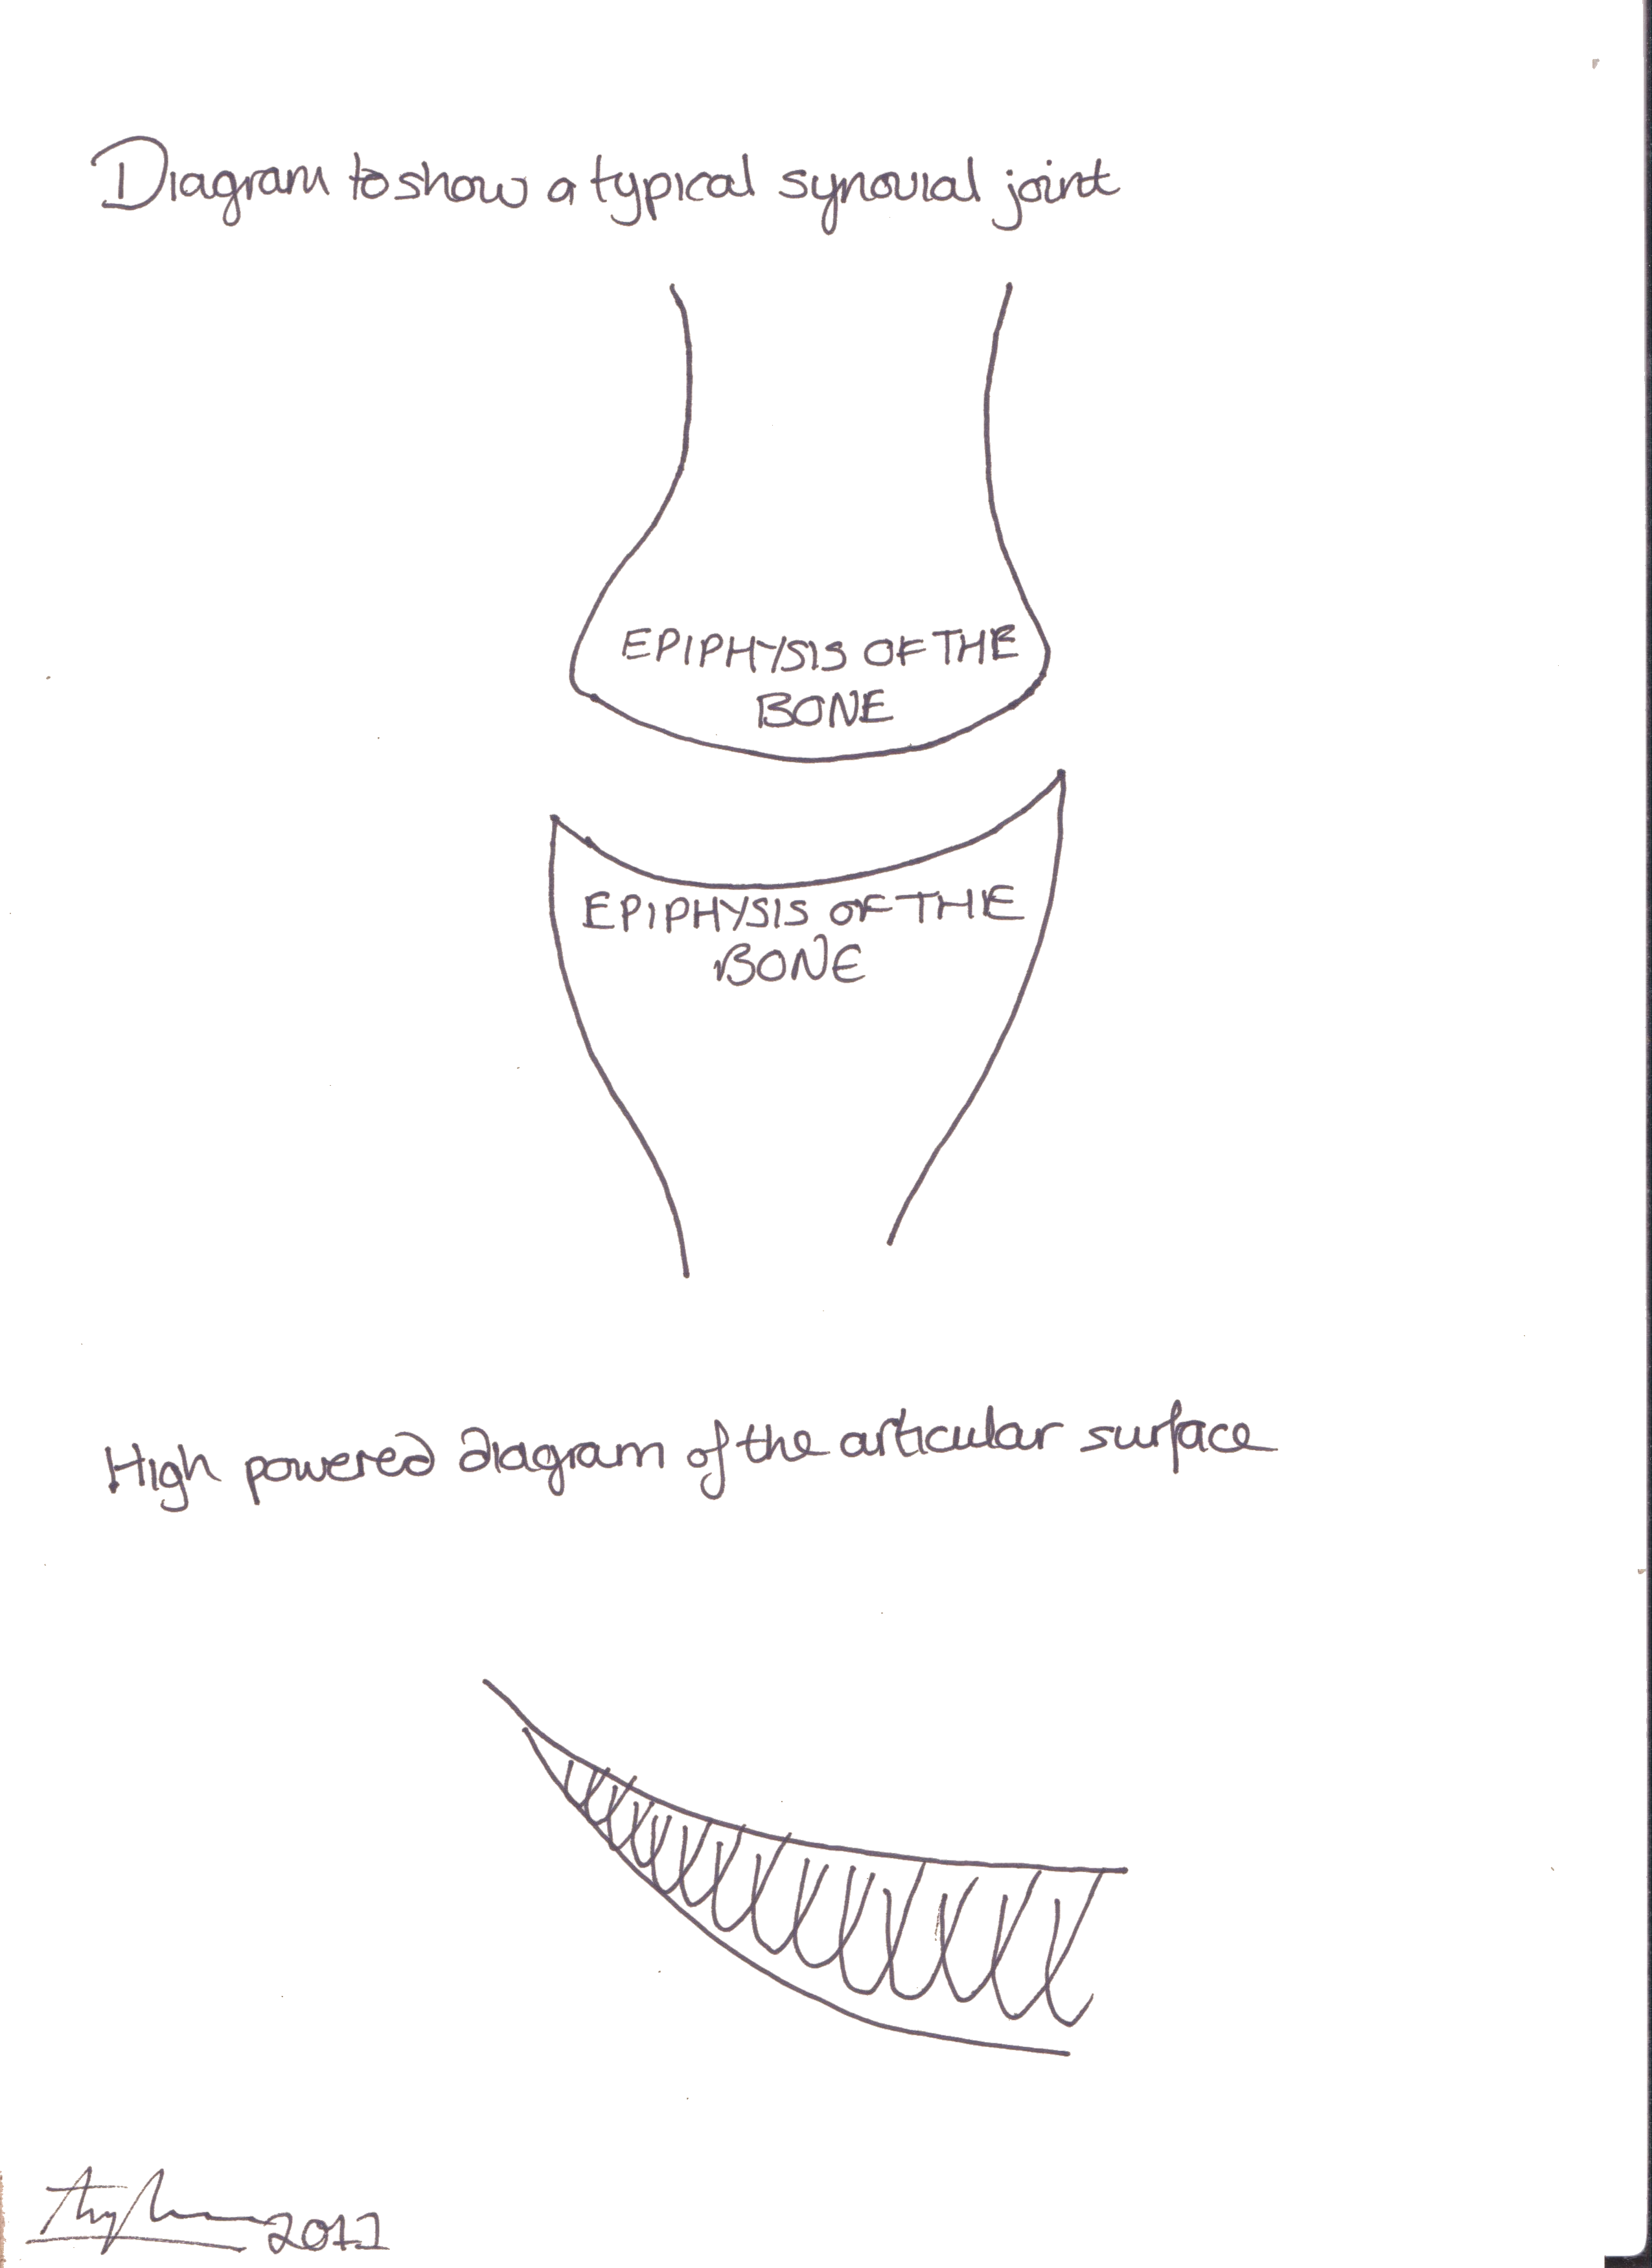 Diagram to show a typical synovial joint
EPIPHYSIS OF THE
BONE
EPIPHYSIS OF THE
BONE
High powered diagram of the articular surface
2012